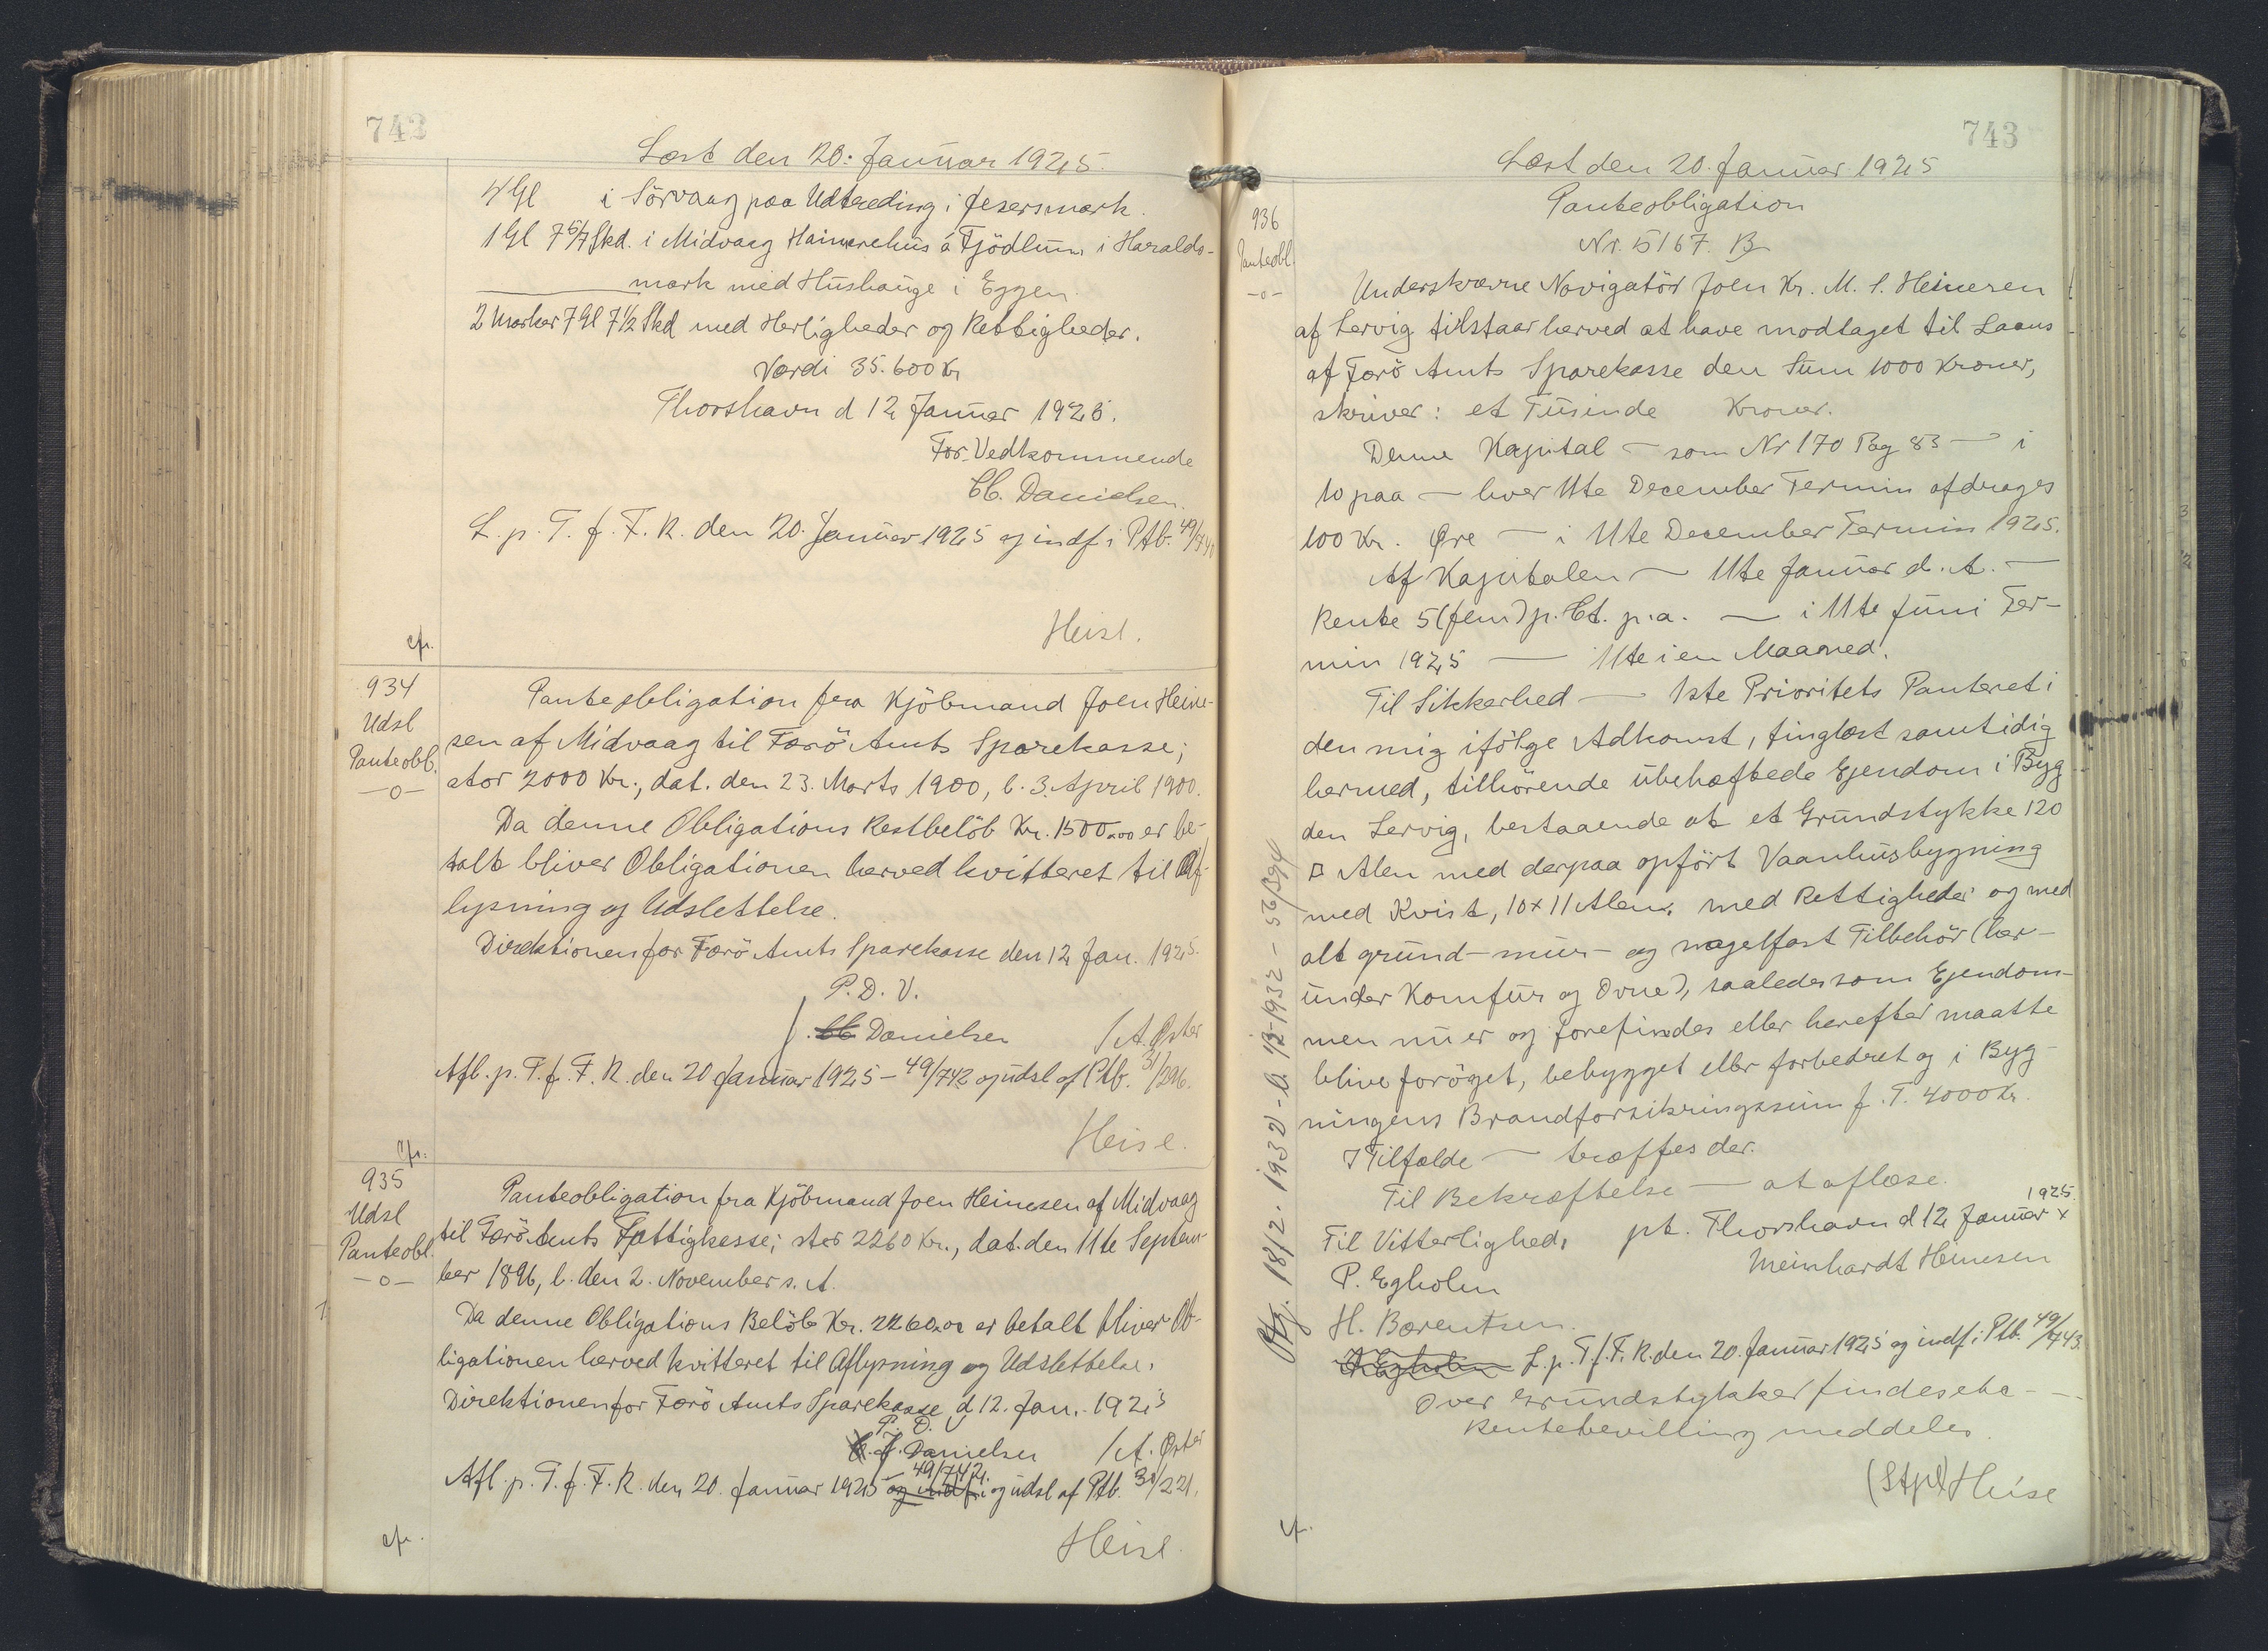 742
Læst den 20. Januar 1925.
4 Gl i Sörvaag paa Udtreding i Jesersmark.
1 Gl 7 6/7 Skd. i Midvaag Heimrehus á Fjödlum i Haralds-
mark med Hushauge i Eggen
2 Marker 7 Gl 7 1/2 Skd med Herligheder og Rettigheder.
Værdi 35.600 Kr
Thorshavn d 12 Januar 1925.
For Vedkommende
Chr. Danielsen
L. p. T. f. F. R. den 20. Januar 1925 og indf. i Ptb. 49/741
Heise.
cfr.
934
Udsl
Panteobl.
—o—
Panteobligation fra Kjöbmand Joen Heine-
sen af Midvaag til Færö Amts Sparekasse;
stor 2000 Kr., dat. den 23. Marts 1900, l. 3. April 1900.
Da denne Obligations Restbelöb Kr. 1500,00 er be-
talt bliver Obligationen herved kvitteret til Af-
lysning og Udslettelse.
Direktionen for Færö Amts Sparekasse den 12 Jan. 1925.
P. D. V.
J. Danielsen / A. Öster
Afl. p. T. f. F. R. den 20 Januar 1925 – 49/742 og udsl af Ptb. 31/296.
Heise.
cfr.
935
Udsl
Panteobl.
—o—
Panteobligation fra Kjöbmand Joen Heinesen af Midvaag
til Færö Amts Fattigkasse; stor 2260 Kr., dat. den 11te Septem-
ber 1896, l. den 2. November s. A.
Da denne Obligations Belöb Kr. 2260,00 er betalt bliver Ob-
ligationen herved kvitteret til Aflysning og Udslettelse.
Direktionen for Færö Amts Sparekasse d 12. Jan. 1925
P. D.
J. Danielsen / A. Öster
Afl. p. T. f. F. R. den 20. Januar 1925 – 49/742. og indf. i og udsl af Ptb. 30/221.
Heise.
cfr.
743
Læst den 20. Januar 1925
936
Panteobl.
—o—
Panteobligation
Nr. 5167. B
Underskrevne Navigatör Joen Kr. M. S. Heinesen
af Lervig tilstaar herved at have modtaget til Laans
af Færö Amts Sparekasse den Sum 1000 Kroner,
skriver: et Tusinde Kroner.
Denne Kapital — som Nr 170 Pag 83 — i
10 paa — hver 11te December Termin afdrages
100 Kr. Øre — i 11te December Termin 1925.
Af Kapitalen — 11te Januar d. A. —
Rente 5 (fem) p. Ct. p. a. — i 11te Juni Ter-
min 1925 — 11te i en Maaned.
Til Sikkerhed — 1ste Prioritets Panteret i
den mig ifölge Adkomst, tinglæst samtidig
hermed, tilhörende ubehæftede Ejendom i Byg
den Lervig, bestaaende af et Grundstykke 120
□ Alen med derpaa opfört Vaanhusbygning
med Kvist, 10 x 11 Alen, med Rettigheder og med
alt grund- mur- og nagelfast Tilbehör (her-
under Komfur og Ovne), saaledes som Ejendom-
men nu er og forefindes eller herefter maatte
blive foröget, bebygget eller forbedret og i Byg-
ningens Brandforsikringssum f. T. 4000 Kr.
I Tilfælde — træffes der.
Til Bekræftelse — at aflæse.
Til Vitterlighed, pt. Thorshavn d 12 Januar x 1925.
P. Egholm Meinhardt Heinesen
H. Bærentsen.
P. Egholm L. p. T. f. F. R. den 20. Januar 1925 og indf. i Ptb. 49/743.
Over Grundstykket findes etc — —
Rentebevilling meddeles.
(Stpl) Heise
cfr.